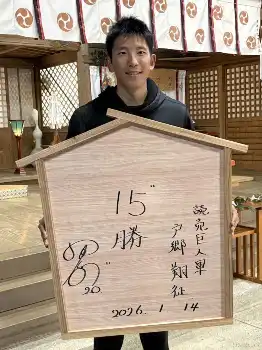 読売巨人軍
戸郷 翔征
15"
勝
20"
2026. 1. 14